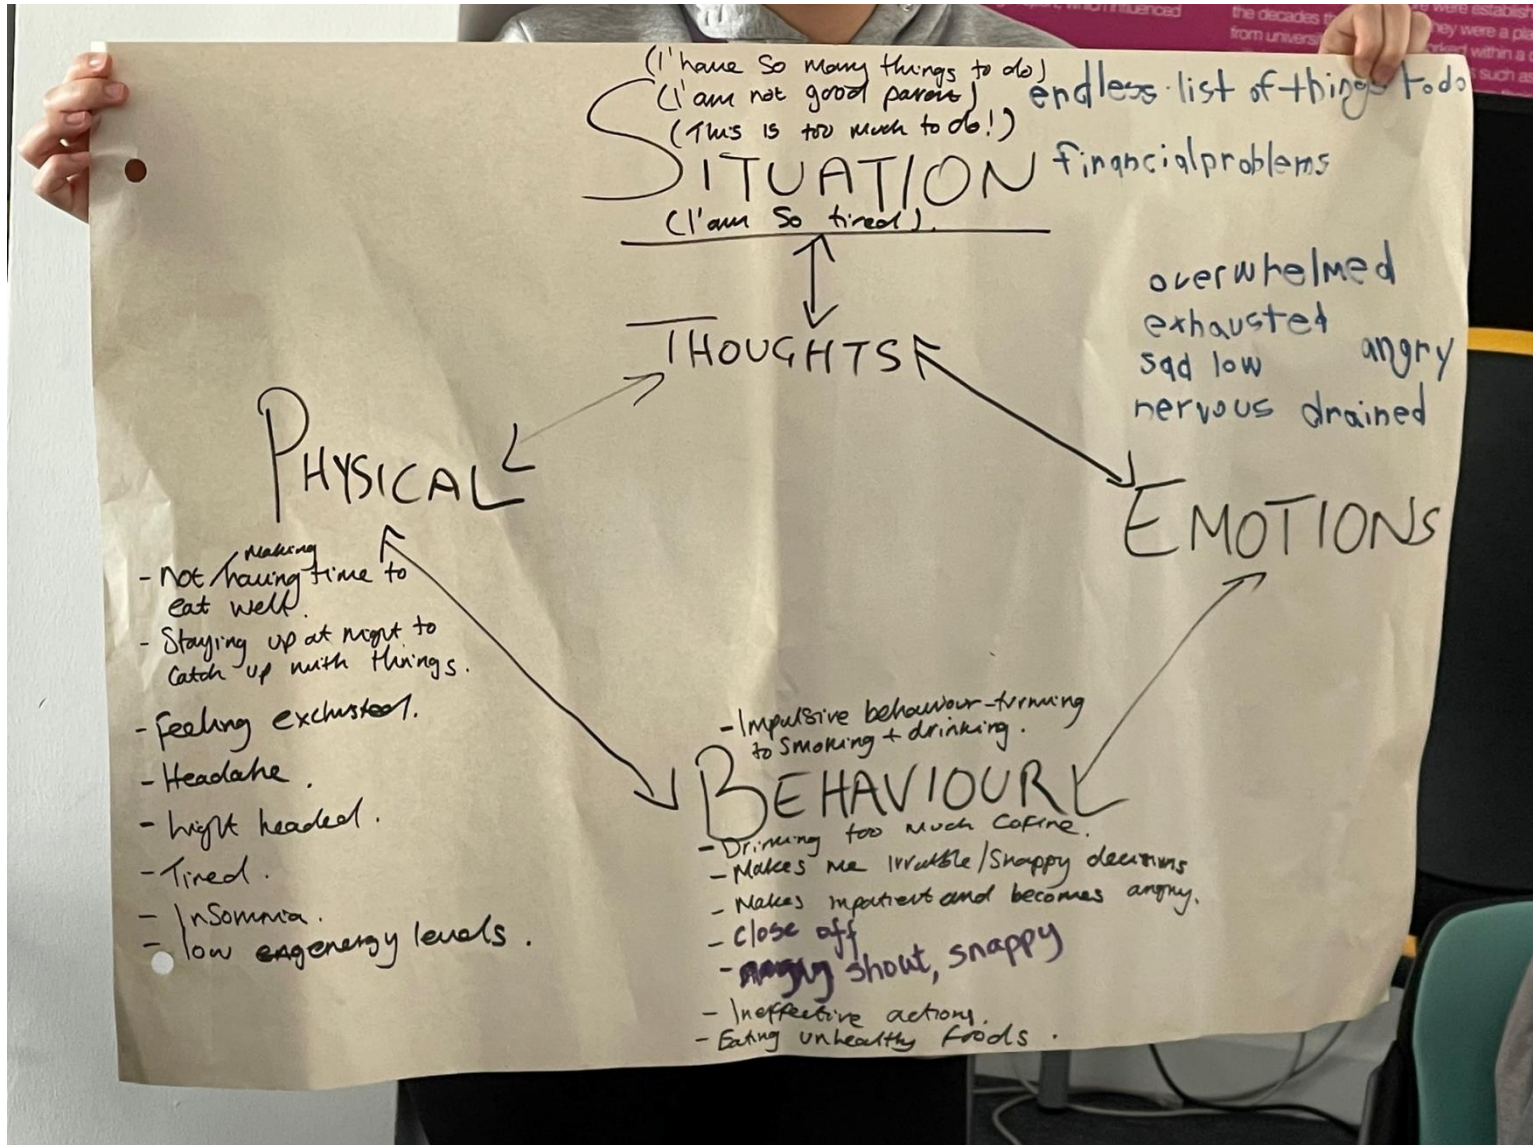 which influenced
the decades
from univers
were establish
they were a pla
worked within a
such as
(I'have so many things to do)
(I'am not good parent)
(This is too much to do!)
SITUATION
(I'am so tired).
endless list of things todo
financial problems
THOUGHTS
overwhelmed
exhausted
sad low angry
nervous drained
PHYSICAL
EMOTIONS
making
- Not having time to
eat well.
- Staying up at night to
catch up with things.
- Feeling exchusted.
- Headake.
- light headed.
- Tired.
- Insomnia.
- low energy levels.
- Impulsive behaviour-turning
to smoking + drinking.
BEHAVIOUR
- Drinking too much cofine.
- Makes me irratble/snappy decisions
- Makes impatient and becomes angry.
- close off
- shout, snappy
- Ineffective actions.
- Eating unhealthy foods.